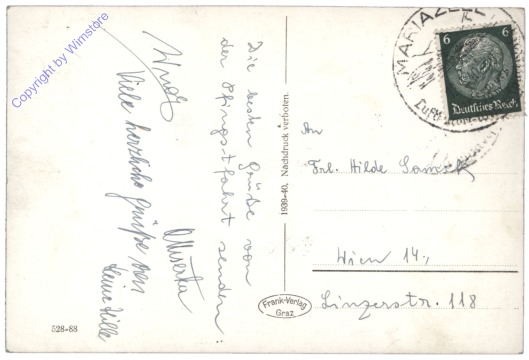 Die besten Grüße von
der Pfingstfahrt senden
Viele herzliche Grüße von
1939-40. Nachdruck verboten.
An
Frl. Hilde
Wien 14.,
Linzerstr. 118
MARIAZELL
6 6
Deutsches Reich
Frank-Verlag
Graz
528-88
Copyright by Wimstore